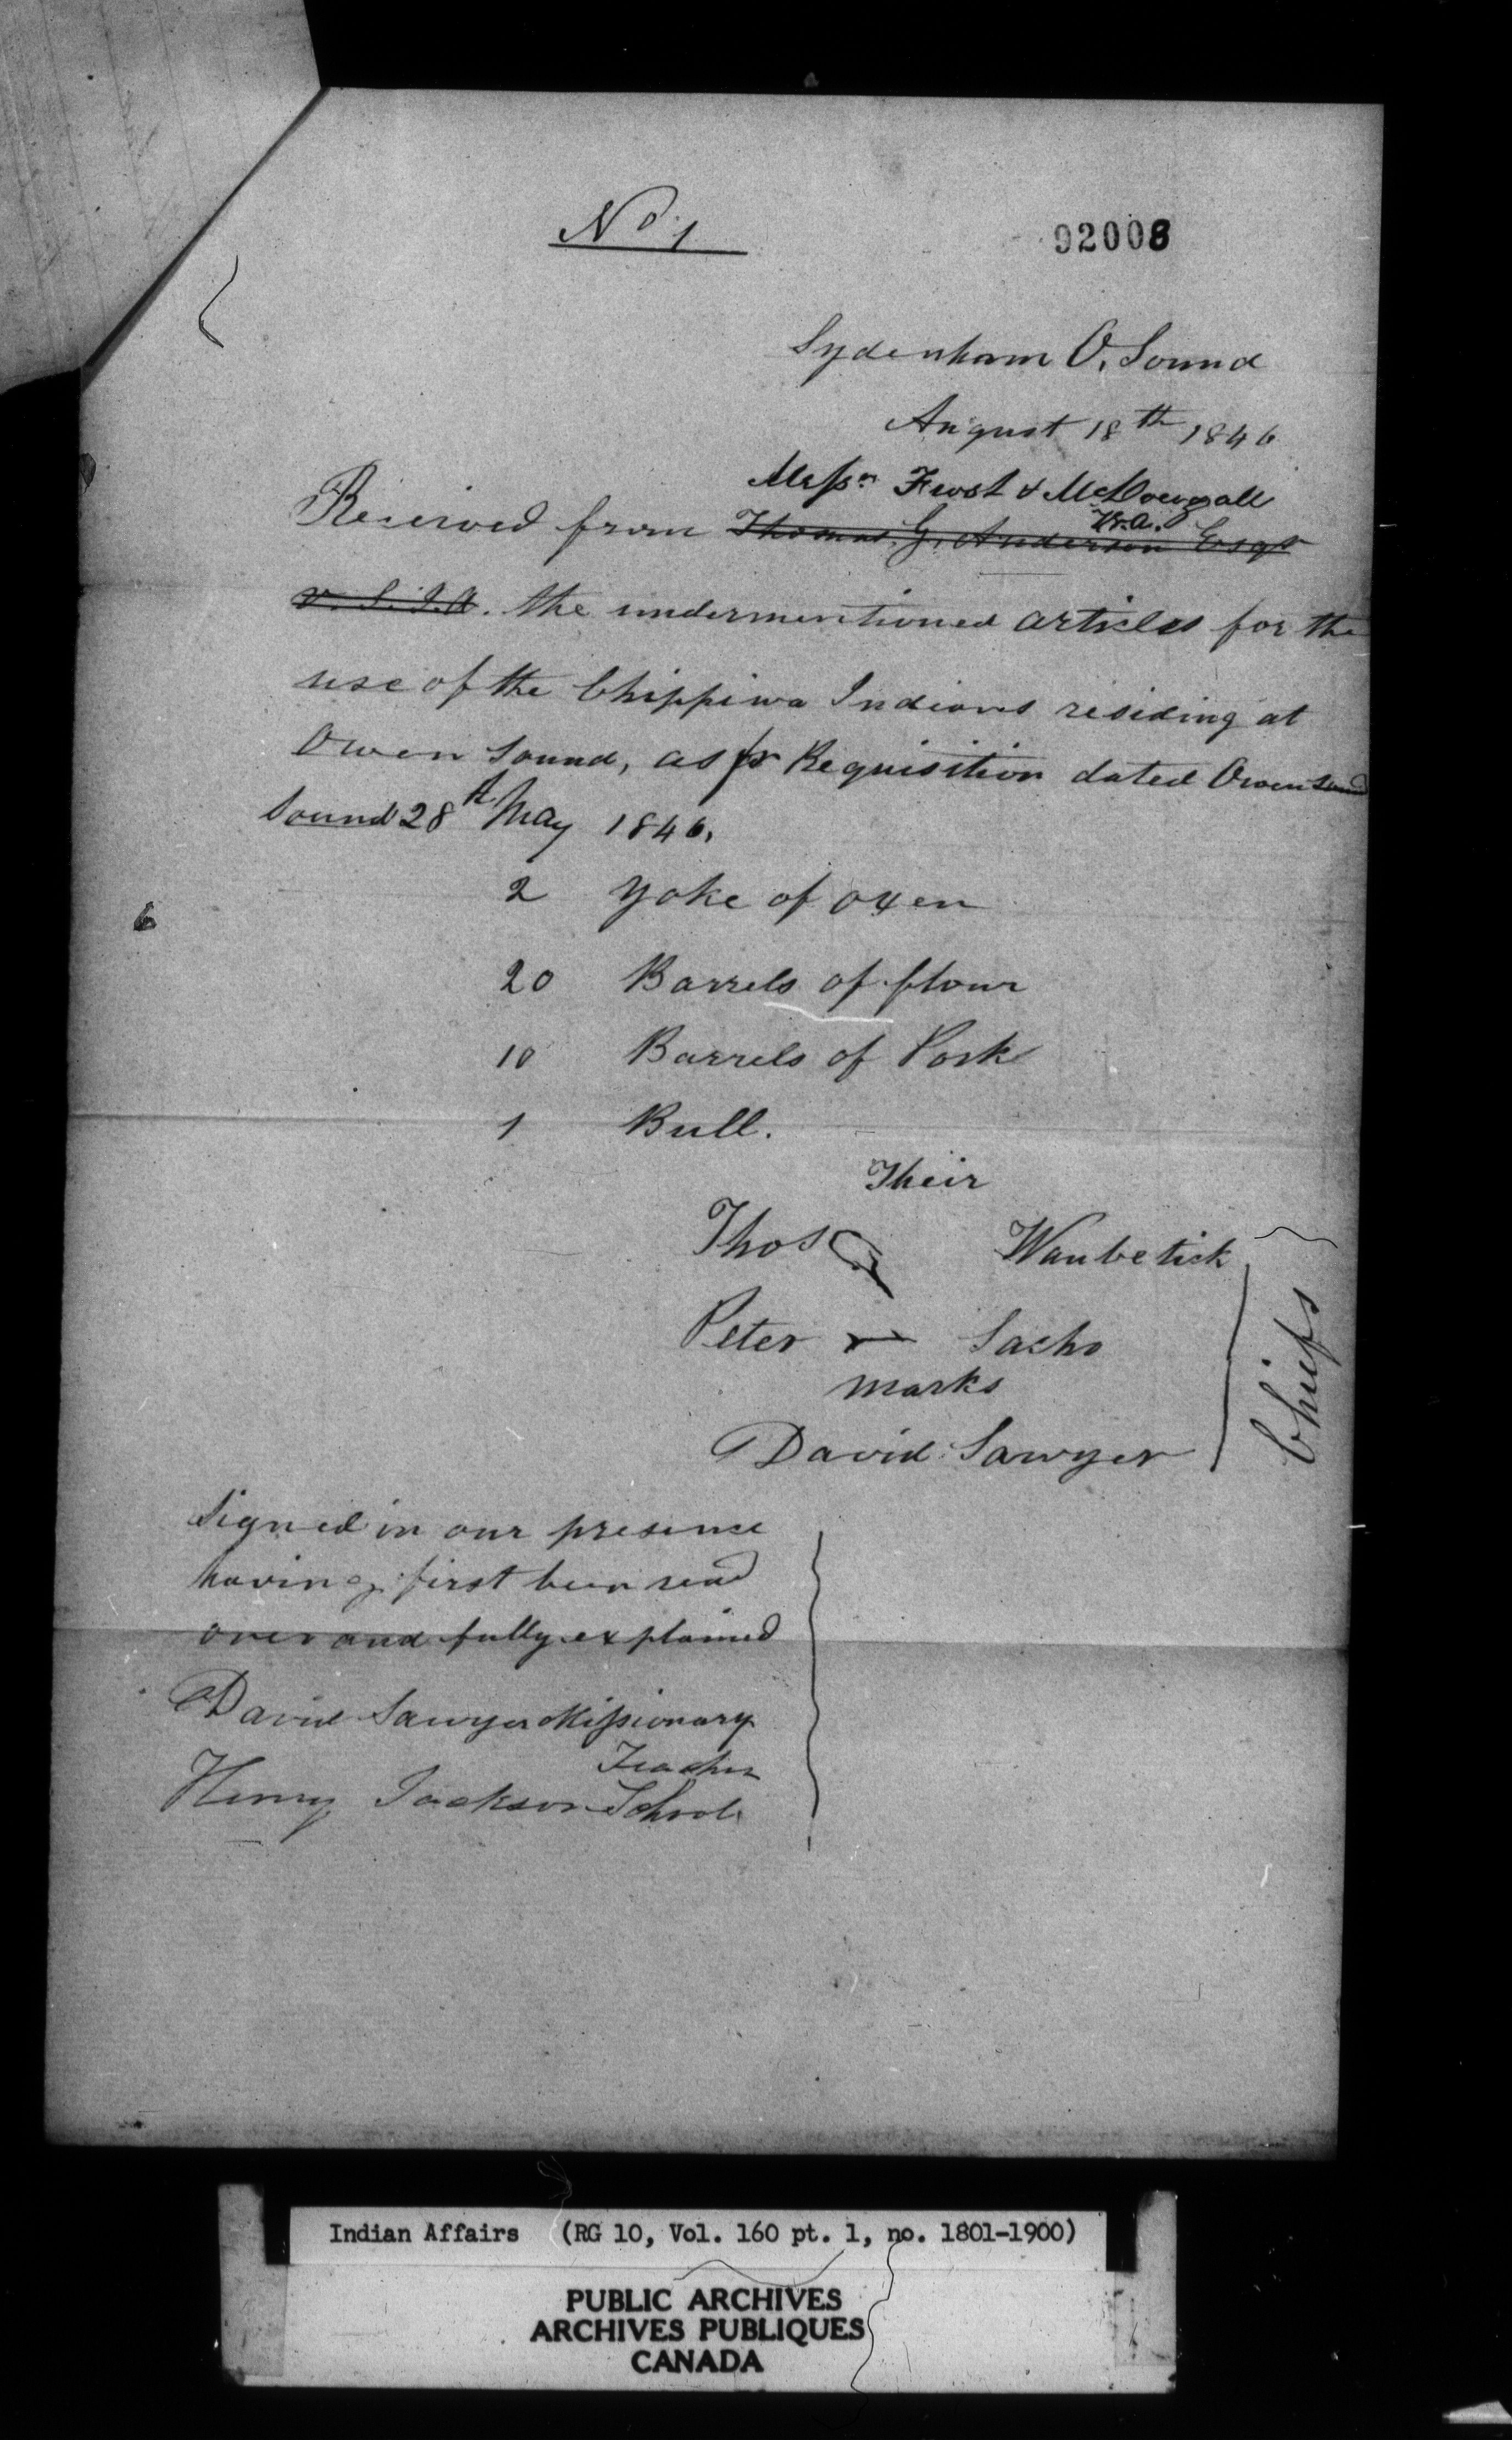 No 1
92008
Sydenham O. Sound
August 18th 1846
Messrs Frost & McDougall
W.A.
Received from Thomas G. Anderson Esqr
V. S. I. A. the undermentioned articles for the
use of the Chippiwa Indians residing at
Owen Sound, as pr Requisition dated Owen Sound
Sound 28th May 1846.
2 Yoke of oxen
20 Barrels of flour
10 Barrels of Pork
1 Bull.
Their
Thos Waubetick
Peter Sacho
marks
David Sawyer
Chiefs
Signed in our presence
having first been read
over and fully explained
David Sawyer Missionary
Teacher
Henry Jackson School
6
Indian Affairs (RG 10, Vol. 160 pt. 1, no. 1801-1900)
PUBLIC ARCHIVES
ARCHIVES PUBLIQUES
CANADA